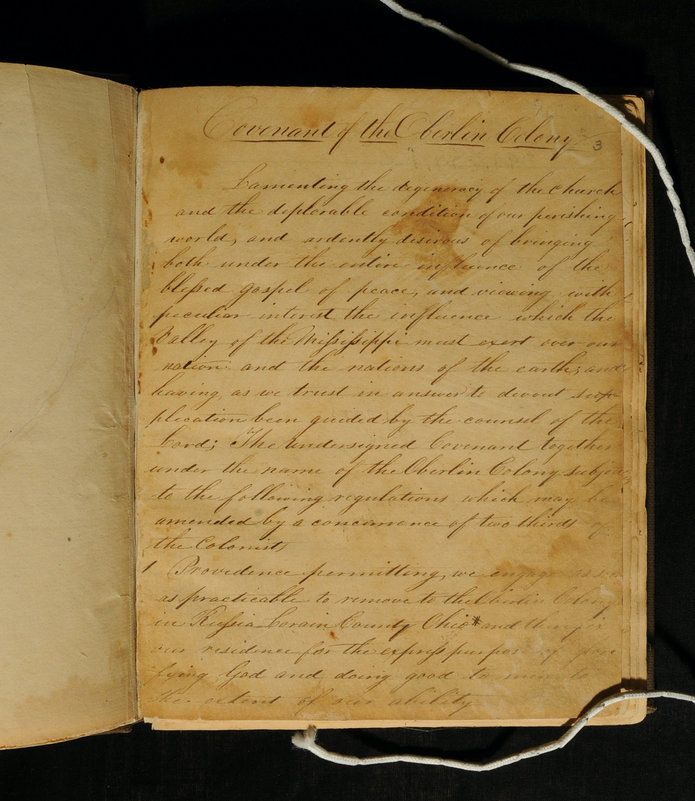 Covenant of the Oberlin Colony
3
Lamenting the degeneracy of the Church
and the deplorable condition of our perishing
world, and ardently desirous of bringing
both under the entire influence of the
blessed gospel of peace, and viewing with
peculiar interest the influence which the
Valley of the Mississippi must exert over our
nation and the nations of the earth; and
having, as we trust in answer to devout sup-
plication been guided by the counsel of the
Lord; The undersigned Covenant together
under the name of the Oberlin Colony subject
to the following regulations which may be
amended by a concurrence of two thirds of
the Colonists
1 Providence permitting, we engage as soon
as practicable to remove to the Oberlin Colony
in Russia Lorain County Ohio* and there fix
our residence for the express purpose of glori
fying God and doing good to men to
the extent of our ability